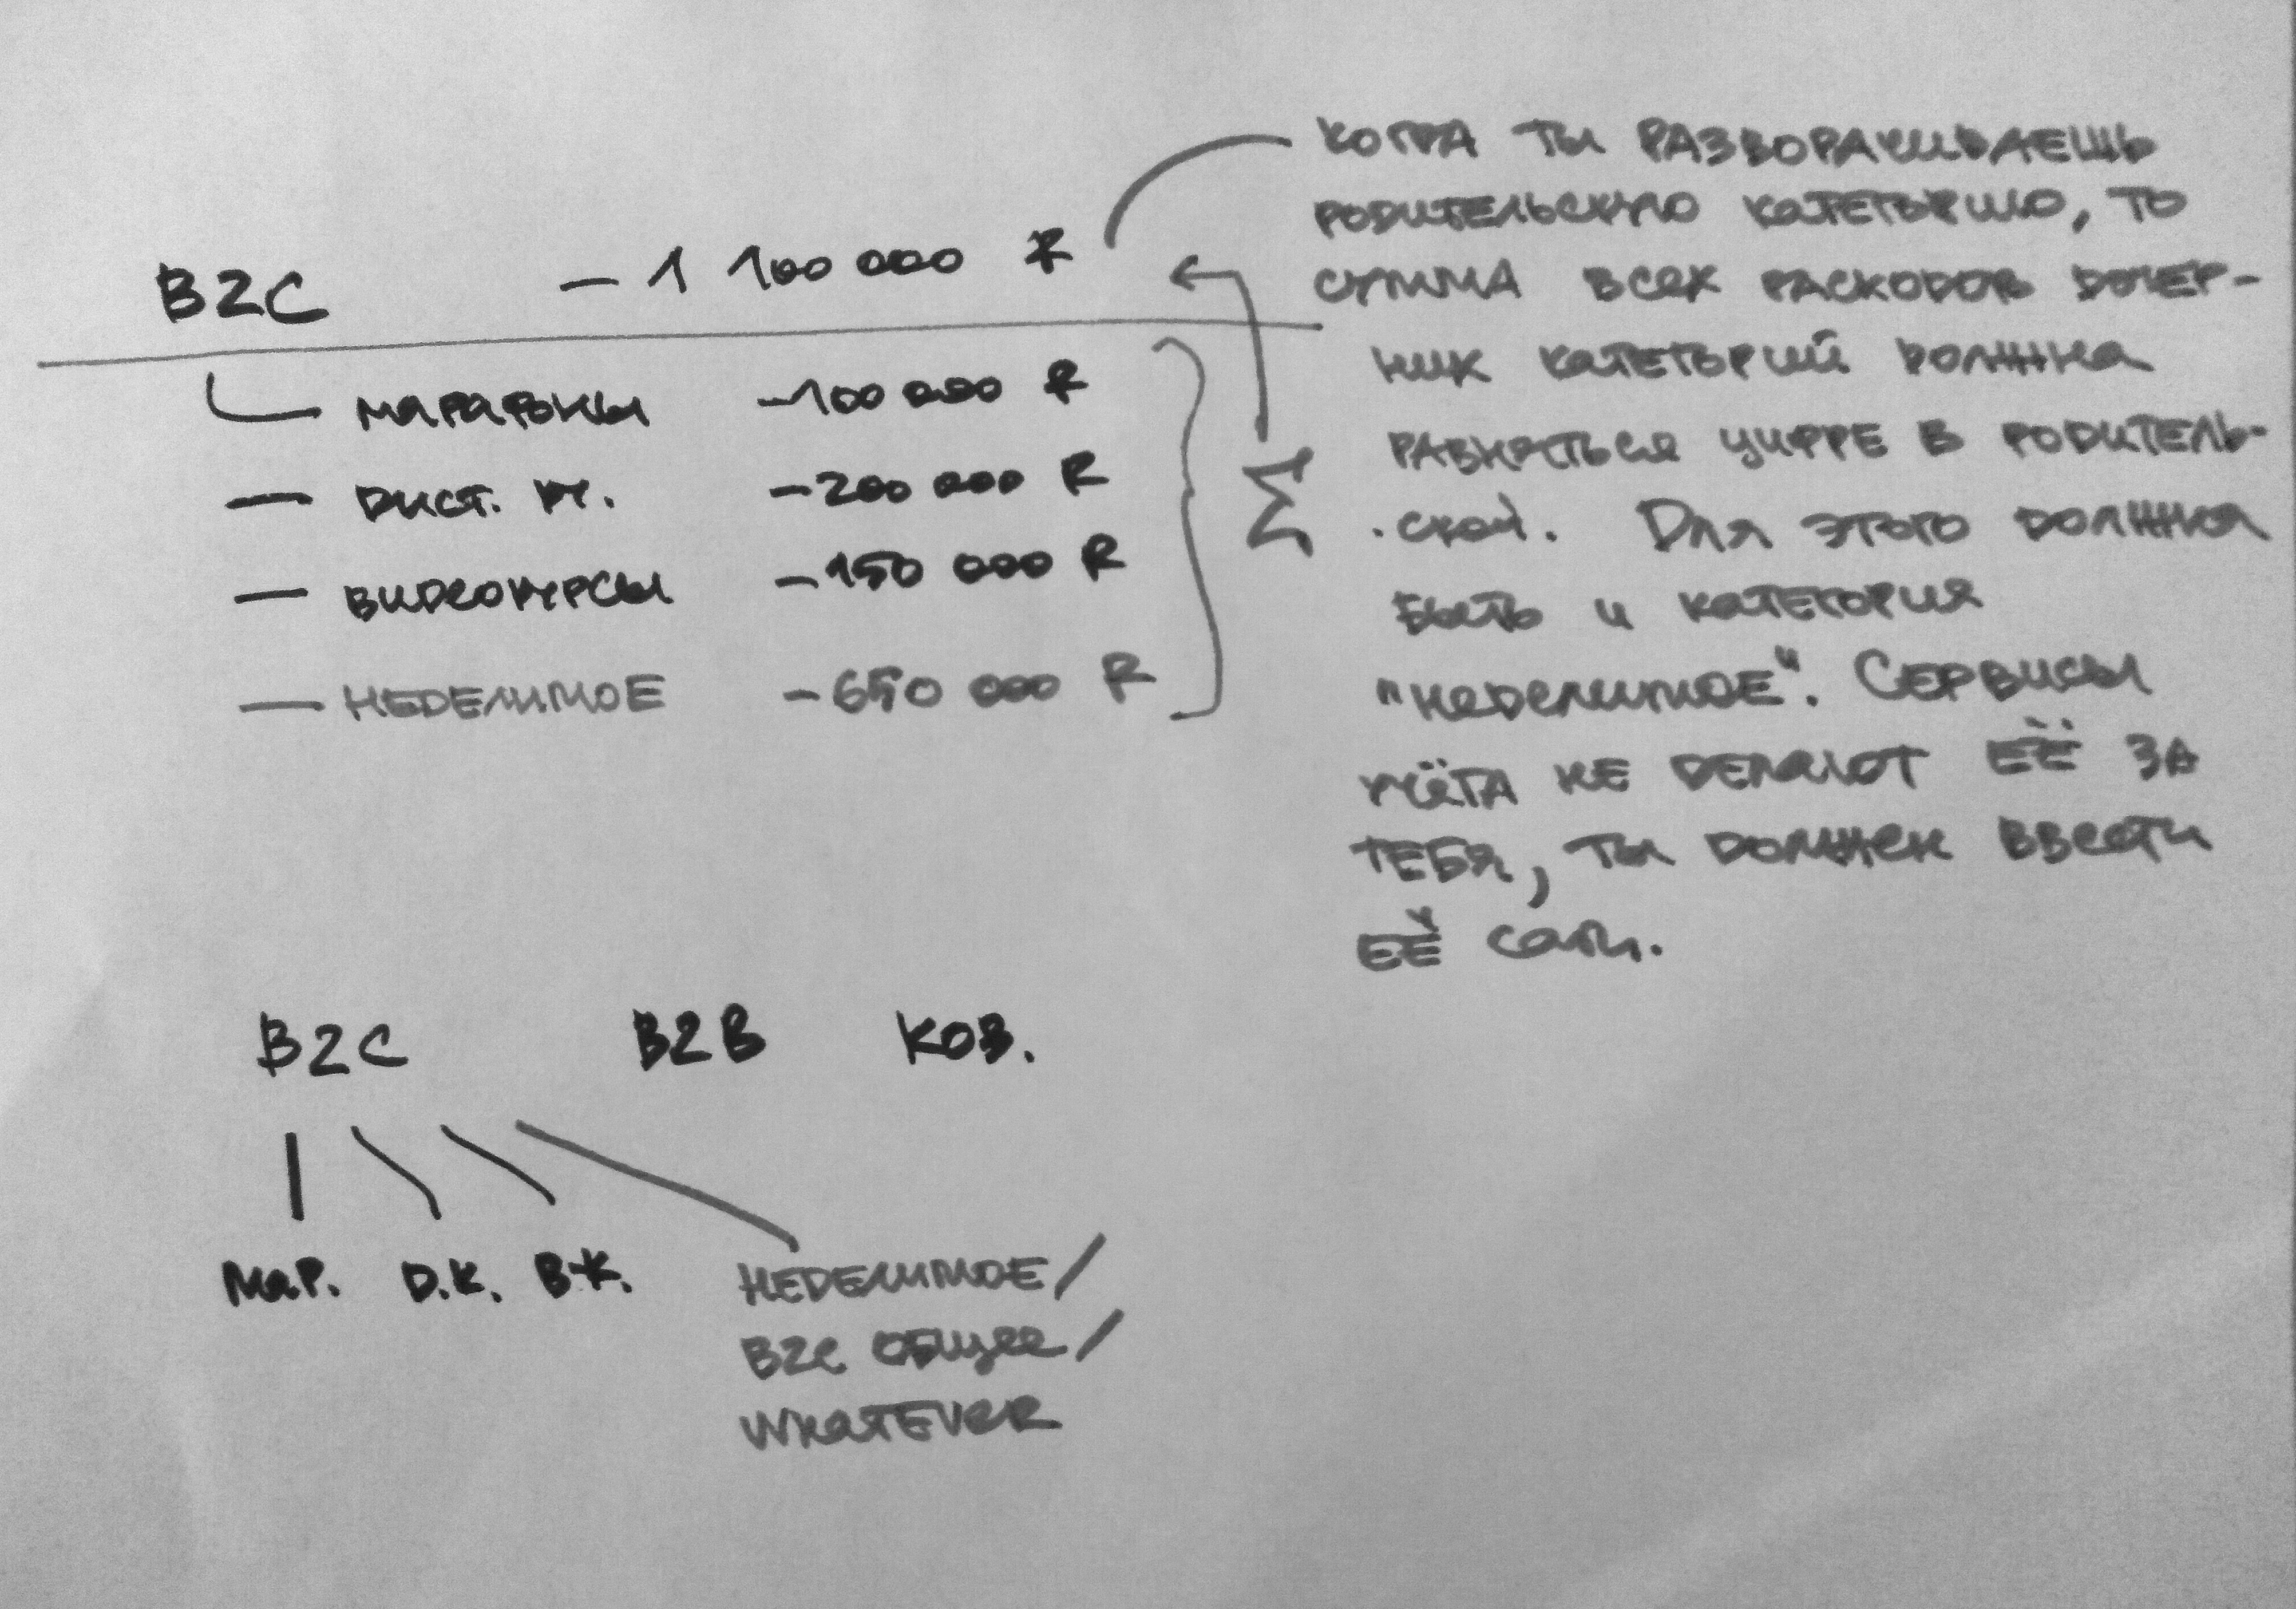 B2C — 1 100 000 ₽
МАРАФОНЫ —100 000 ₽
— ДИСТ. КУ. —200 000 ₽
— ВИДЕОКУРСЫ —150 000 ₽
— НЕДЕЛИМОЕ —650 000 ₽
Σ
КОГДА ТЫ РАЗВОРАЧИВАЕШЬ
РОДИТЕЛЬСКУЮ КАТЕГОРИЮ, ТО
СУММА ВСЕХ РАСХОДОВ ДОЧЕР-
НИХ КАТЕГОРИЙ ДОЛЖНА
РАВНЯТЬСЯ ЦИФРЕ В РОДИТЕЛЬ-
СКОЙ. ДЛЯ ЭТОГО ДОЛЖНА
БЫТЬ И КАТЕГОРИЯ
"НЕДЕЛИМОЕ". СЕРВИСЫ
УЧЁТА НЕ ДЕЛАЮТ ЕЁ ЗА
ТЕБЯ, ТЫ ДОЛЖЕН ВВЕСТИ
ЕЁ САМ.
B2C B2B КОВ.
МАР. Д.К. В.К. НЕДЕЛИМОЕ/
B2C ОБЩЕЕ/
WHATEVER